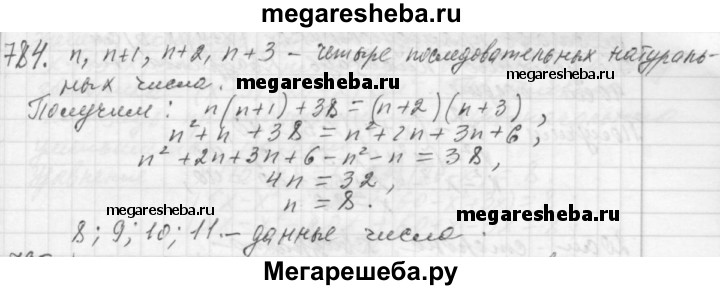 megaresheba.ru
784. n, n+1, n+2, n+3 – четыре последовательных натураль-
ных числа.
megaresheba.ru
megaresheba.ru
Получим: n(n+1)+38=(n+2)(n+3),
n²+n+38=n²+2n+3n+6,
n²+2n+3n+6-n²-n=38,
4n=32,
n=8.
megaresheba.ru
megaresheba.ru
8; 9; 10; 11.– данные числа.
Мегарешеба.ру